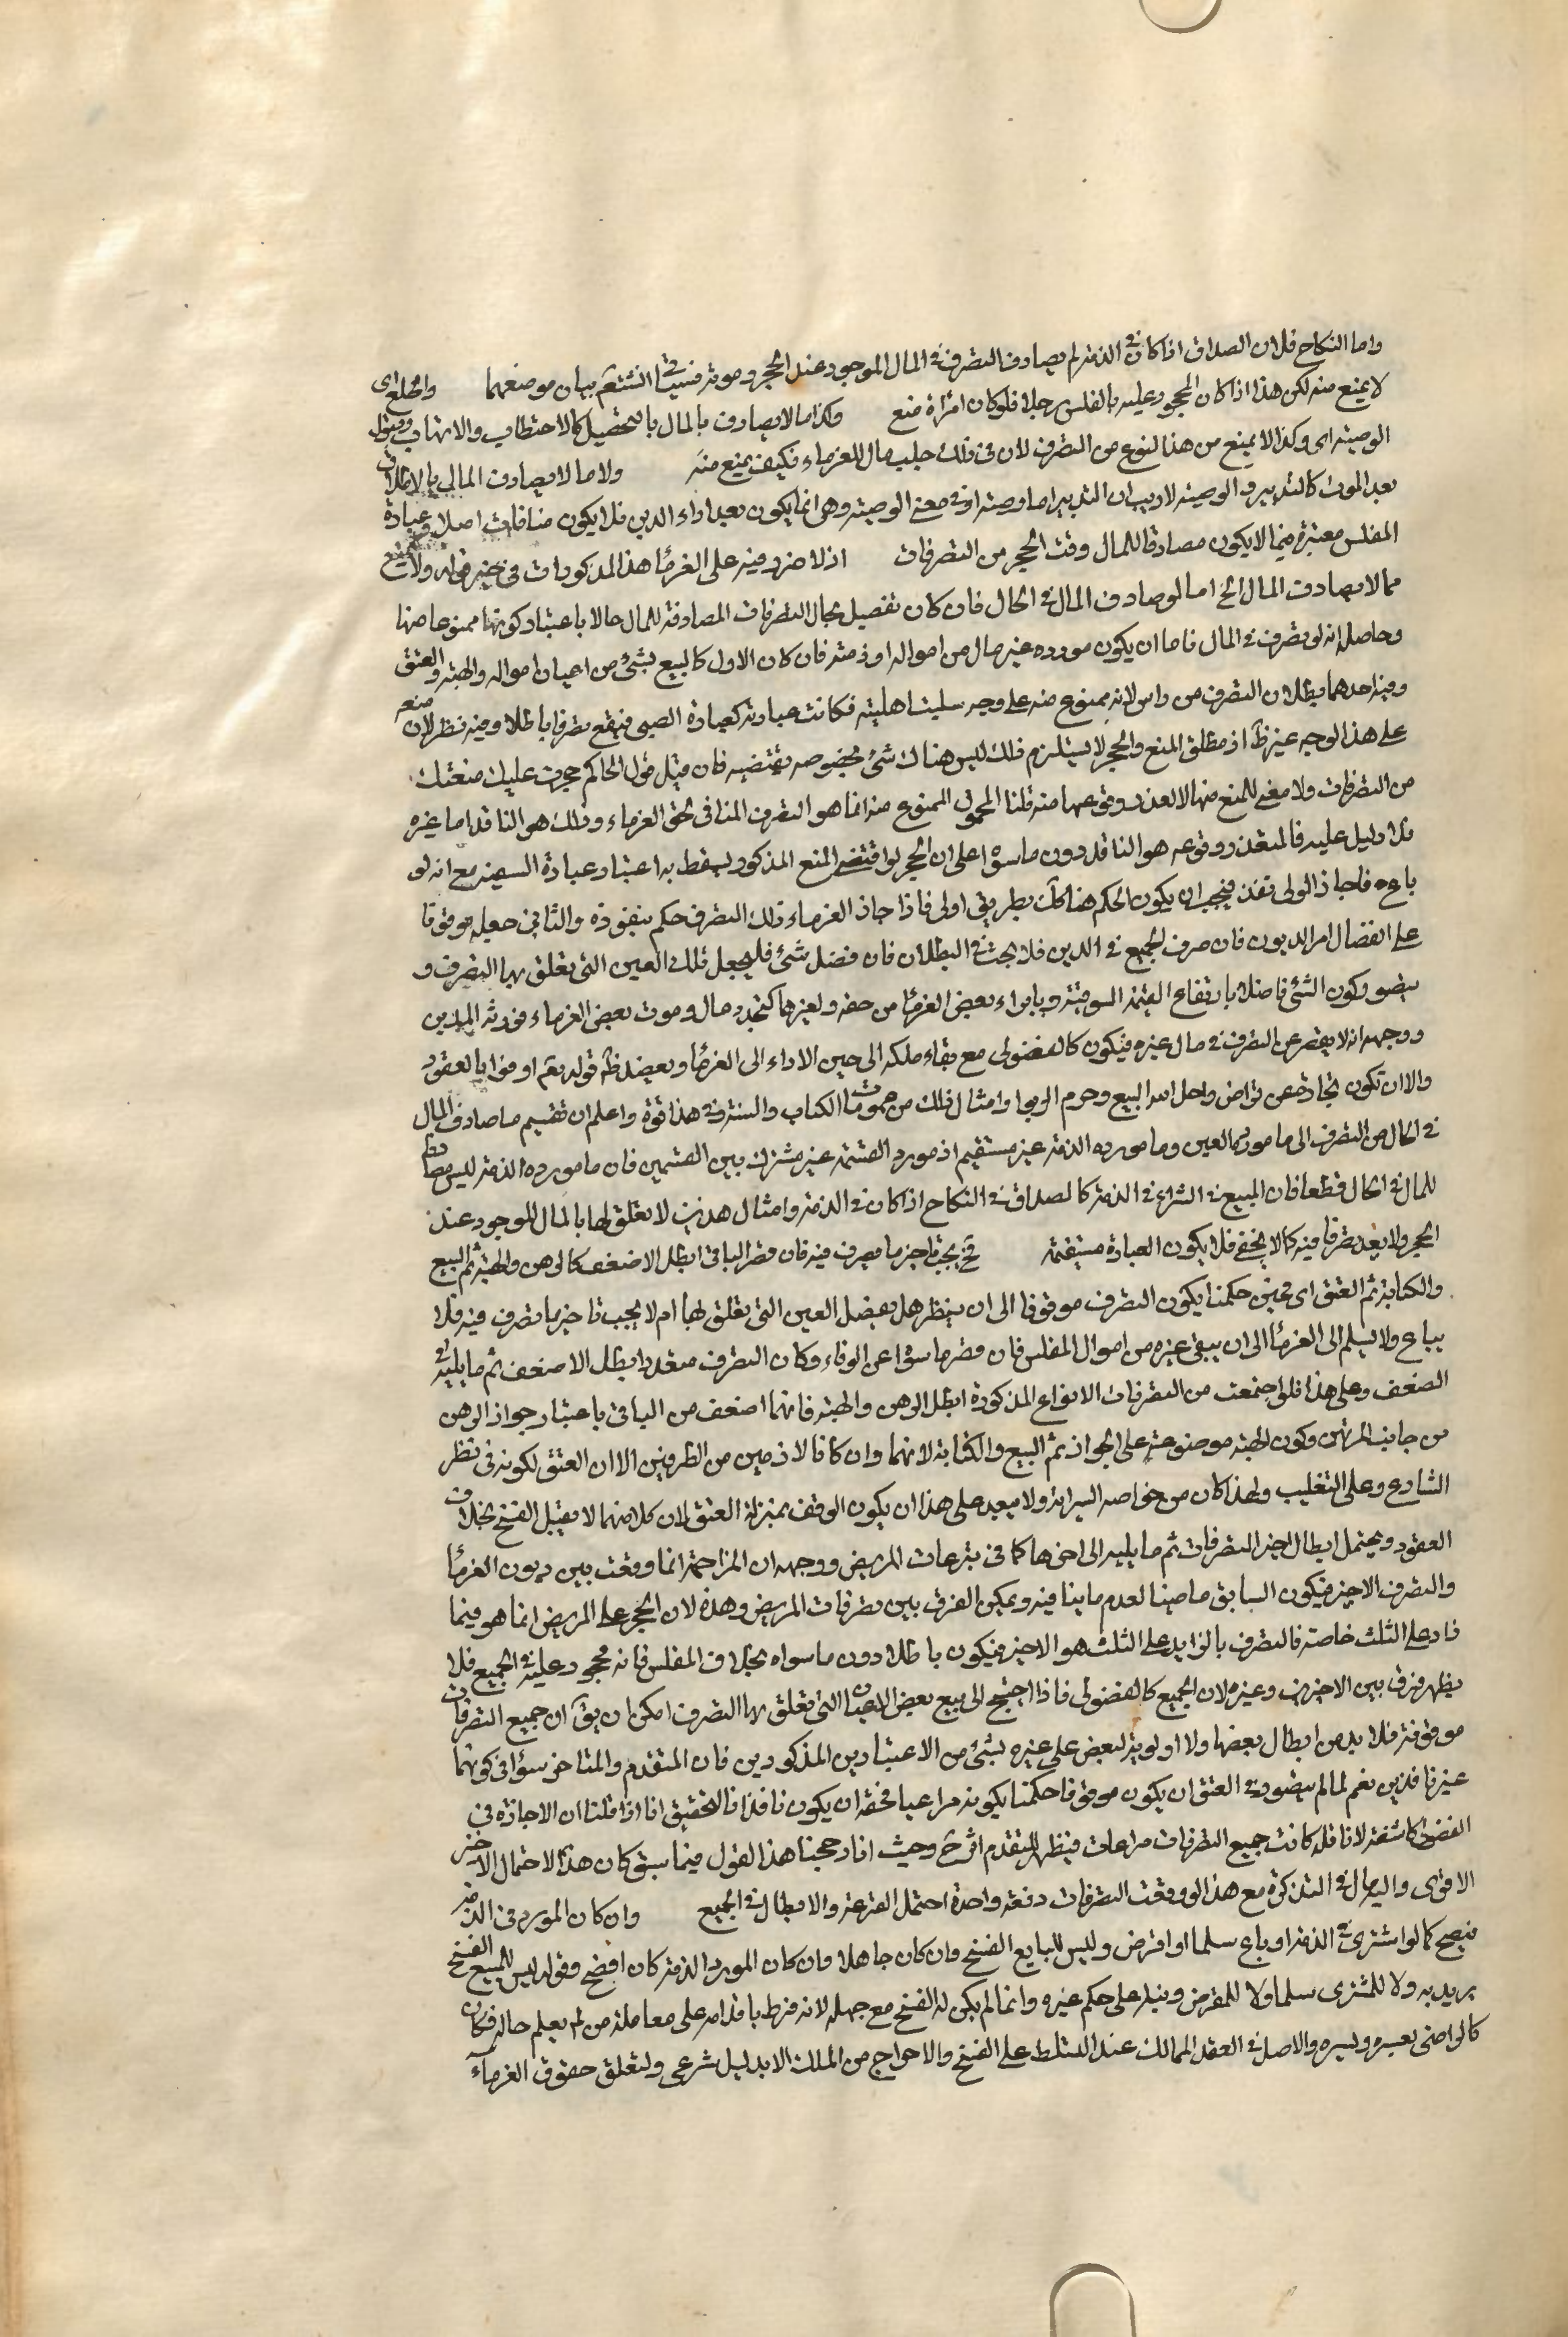 واما النكاح فلان الصداق اذا كان في الذمة لم يصادف التصرف في المال الموجود عند الحجر ومونه فسيأتي انشا الله تعم بيان موضعهما والخلع اى
لا يمنع منه لكن هذا اذا كان المحجور عليه بالفلس رجلا فلو كان امرأة منع وكذا ما لا يصادف بالمال بالتحصيل كالاحتطاب والاتهاب وقبول
الوصية اى وكذا لا يمنع من هذا لنوع من التصرف لان في ذلك جلب مال للغرماء فكيف يمنع منه ولا ما لا يصادف المال بالاتلاف
بعد الموت كالتدبير والوصية لا ريب ان التدبير اما وصية او في معنى الوصية وهى انما يكون بعد اداء الدين فلا يكون منافات اصلا وعبارة
المفلس معتبرة فيما لا يكون مصادفا للمال وقت الحجر من التصرفات اذ لا ضرر فيه على الغرما هذا المذكورات في حيز قوله ولا يمنع
مما لا يصادف المال الخ اما لو صادف المال في الحال فان كان تفصيل بحال التصرفات المصادفة للمال حالا باعتبار كونها ممنوعا منها
وحاصله انه لو تصرف في المال فاما ان يكون مورده عين مال من امواله او ذمته فان كان الاول كالبيع بشئ من اعيان امواله والهبة والعتق
وفيه احدهما يبطل ان التصرف من راس لانه ممنوع منه على وجه سلبت اهليته فكانت عبارته كعبارة الصبى فيقع تصرفا باطلا وفيه نظر لان منعه
على هذا الوجه غير ظ اذ مطلق المنع والحجر لا يستلزم ذلك ليس هناك شئ بخصوصه يقتضيه فان قيل قول الحاكم حجرت عليك منعتك
من التصرفات ولا معنى للمنع منها الا لعدم وقوعها منه قلنا المحجور الممنوع منه انما هو التصرف المنافى لحق الغرماء وذلك هو النافذ اما غيره
فلا دليل عليه فالمتعذر وقوعه هو النافذ دون ما سواه على ان الحجر لو اقتضى المنع المذكور لسقط به اعتبار عبارة السفيه مع انه لو
باعه فاجاز الولى نفذ فيجب ان يكون الحكم هنا كك بطريق اولى فاذا جاز الغرماء ذلك التصرف حكم بنفوذه والثانى جعله موقوفا
على انفصال امر الديون فان صرف لجميع في الدين فلا بحث في البطلان فان فضل شئ فليجعل تلك العين التى تعلق بها التصرف و
يتصور كون الشئ فاضلا بارتفاع القيمة السوقية وبابراء بعض الغرما من حقه ولغيرهما كتجدد مال وموت بعض الغرماء فورثه المدين
ووجهه انه لا يقصر عن التصرف في مال غيره فيكون كالفضولى مع بقاء ملكه الى حين الاداء الى الغرما ويعضد ظه قوله تعم اوفوا بالعقود
والا ان تكون تجارة عن تراض واحل الله البيع وحرم الربوا وامثال ذلك من عمومات الكتاب والسنة في هذا قوة واعلم ان تقسيم ما صادف المال
في الحال من التصرف الى ما مورده العين وما مورده الذمة غير مستقيم اذ مورد القسمة غير مشترك بين القسمين فان ما مورده الذمة ليس مصادفا
للمال في الحال قطعا فان المبيع في الشراء في الذمة كالصداق في النكاح اذا كان في الذمة وامثال هذين لا تعلق لها بالمال الموجود عند
الحجر ولا يعد تصرفا فيه كما لا يخفى فلا يكون العبارة مستقيمة فح يجب تاخير ما تصرف فيه فان قصر الباقى ابطل الاضعف كالرهن والهبة ثم البيع
والكتابة ثم العتق اى فحين حكمنا بكون التصرف موقوفا الى ان ينظر هل يفضل العين التى تعلق لها ام لا يجب تاخير ما تصرف فيه فلا
يباع ولا يسلم الى الغرما الى ان يبقى غيره من اموال المفلس فان قصر ما سواه عن الوفاء وكان التصرف متعددا ابطل الاضعف ثم ما يليه في
الضعف وعلى هذا فلو اجتمعت من التصرفات الانواع المذكورة ابطل الرهن والهبة فانهما اضعف من الباقى باعتبار جواز الرهن
من جانب المرتهن وكون الهبة موضوعة على الجواز ثم البيع والكتابة لانهما وان كانا لازمين من الطرفين الا ان العتق لكونه في نظر
الشارع وعلى التغليب ولهذا كان من خواصه السراية ولا يبعد على هذا ان يكون الوقف بمنزلة العتق لان كلا منهما لا يقبل الفسخ بخلاف
العقود ويحتمل ابطال اخير التصرفات ثم ما يليه الى اخرها كما في تبرعات المريض ووجهه ان المزاحمة انما وقعت بين ديون الغرما
والتصرف الاخير فيكون السابق ماضيا لعدم ما ينافيه ويمكن الفرق بين تصرفات المريض وهذه لان الحجر على المريض انما هو فيما
زاد على الثلث خاصة فالتصرف بالزايد على الثلث هو الاخير فيكون باطلا دون ما سواه بخلاف المفلس فانه محجور عليه في الجميع فلا
يظهر فرق بين الاخير وغيره لان الجميع كالفضولى فاذا احتيج الى بيع بعض الاعيان التى تعلق بها التصرف امكن ان يق ان جميع التصرفات
موقوفة فلا بد من ابطال بعضها ولا اولوية لبعض على غيره بشئ من الاعتبارين المذكورين فان المتقدم والمتاخر سواء في كونهما
غير نافذين نعم لما لم يتصور في العتق ان يكون موقوفا حكمنا بكونه مراعا فحقه ان يكون نافذا فالتحقيق انا اذا قلنا ان الاجازة في
الفضولى كاشفة لا ناقلة كانت جميع التصرفات مراعات فيظهر للمتقدم اثر ح وحيث انا رجحنا هذا القول فيما سبق كان هذا الاحتمال الاخير
الاقوى واليه مال في التذكرة مع هذا لو وقعت التصرفات دفعة واحدة احتمل القرعة والابطال في الجميع وان كان المورد في الذمة
فيصح كما لو اشترى في الذمة او باع سلما او اقترض وليس للبايع الفسخ وان كان جاهلا وان كان المورد الذمة كان افصح وقوله ليس للمبيع الفسخ
يريد به ولا للمشترى سلما ولا للمقرض ونبه على حكم غيره وانما لم يكن له الفسخ مع جهله لانه فرط باقدامه على معاملة من لم يعلم حاله فكان
كالراضى بعسره ويسره والاصل في العقد المالك عند التسلط على الفسخ والاخراج من الملك الا بدليل شرعى ولتعلق حقوق الغرماء